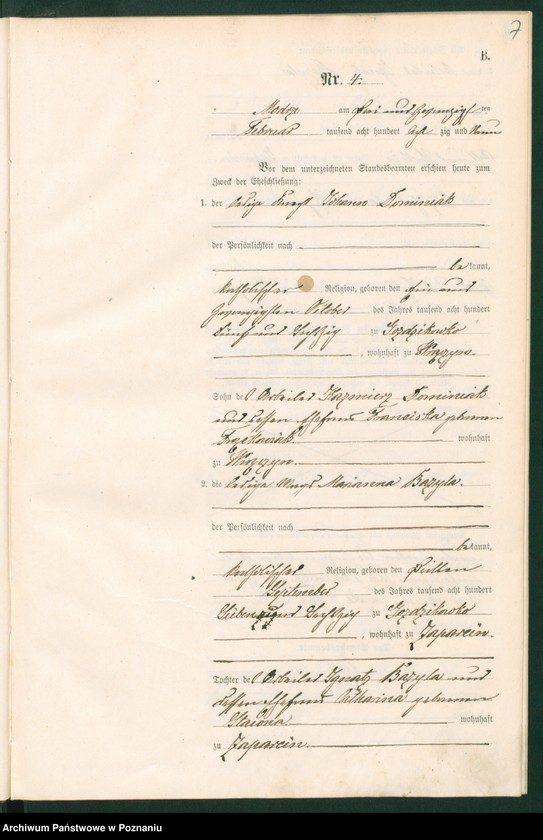 7
B.
Nr. 4.
Modrze am drei und zwanzigsten
Februar tausend acht hundert acht zig und neun
Vor dem unterzeichneten Standesbeamten erschien heute zum
Zweck der Eheschließung:
1. der ledige Knecht Johann Dominiak
der Persönlichkeit nach
be kannt,
katholischer Religion, geboren den ein und
zwanzigsten October des Jahres tausend acht hundert
fünf und sechzig zu Gozdzikowo
, wohnhaft zu
Sohn des Arbeiter Kazmierz Dominiak
und dessen Ehefrau Franciska geborenen
wohnhaft
zu
2. die ledige Magd Marianna Bazyla.
der Persönlichkeit nach
be kannt,
katholischer Religion, geboren den dritten
September des Jahres tausend acht hundert
sieben und sechzig zu Gozdzikowo
, wohnhaft zu Zaparcin.
Tochter des Arbeiter Ignatz Bazyla und
dessen Ehefrau Catharina geborenen
wohnhaft
zu Zaparcin.
Archiwum Państwowe w Poznaniu